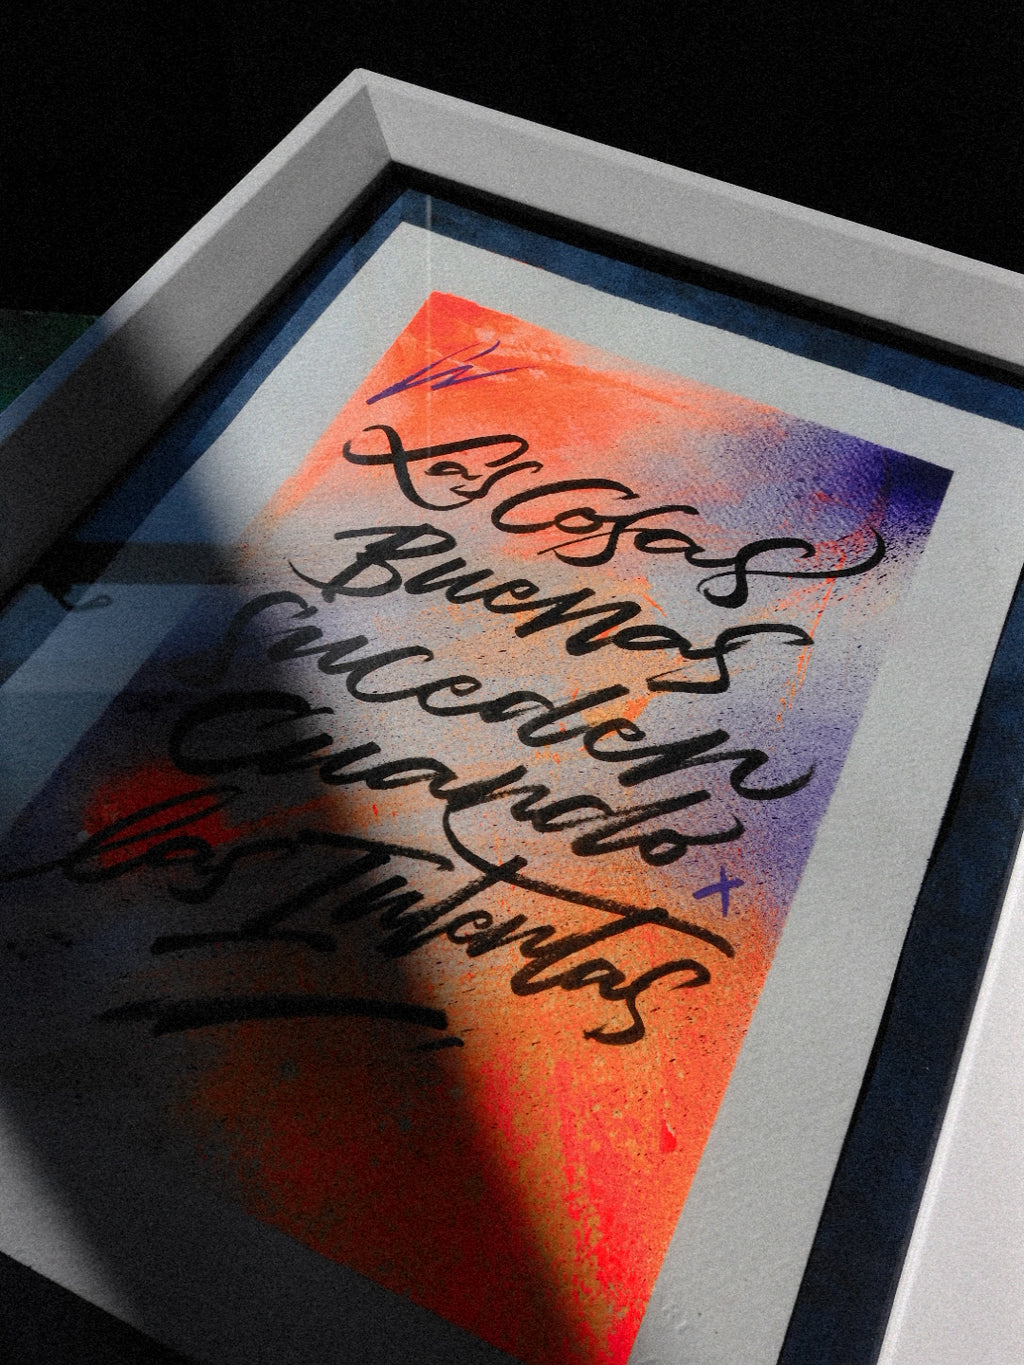 Las Cosas
Buenas
suceden
Cuando
las Intentas